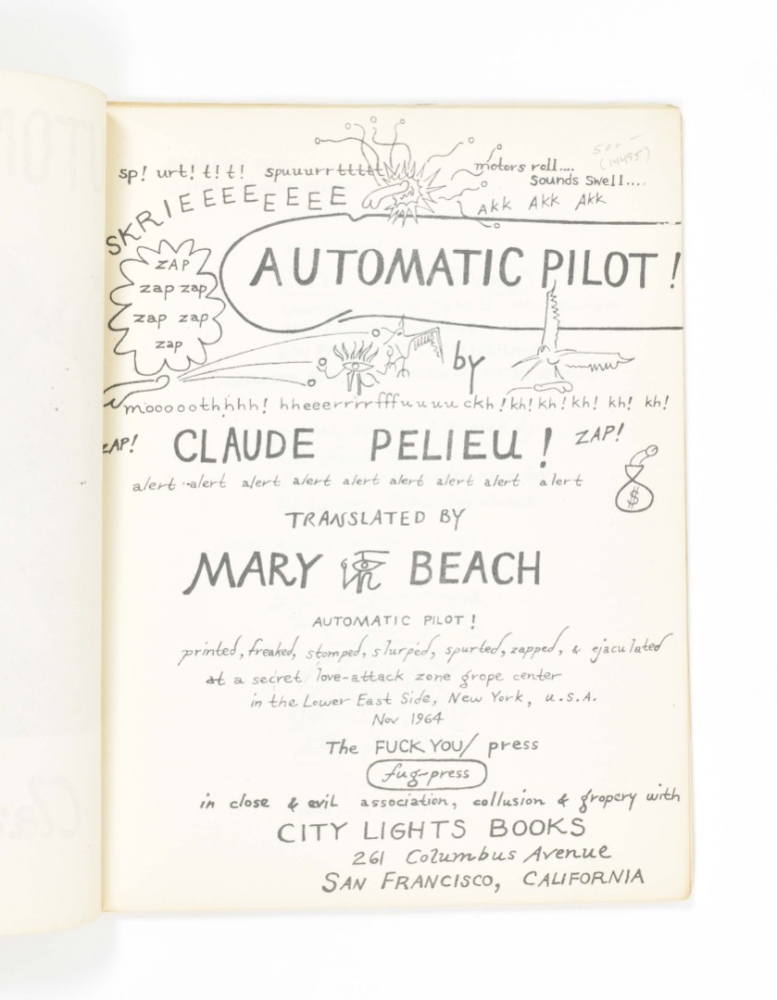 500-
(14495)
sp! urt! t! t! spuuurrttttt motors roll....
Sounds Swell....
SKRIEEEEEEEEE
Akk Akk Akk
ZAP
zap zap
zap zap
zap
AUTOMATIC PILOT!
by
moooothhhh! hheeerrrrfffuuuuckh! kh! kh! kh! kh! kh!
ZAP!
CLAUDE PELIEU!
ZAP!
alert alert alert alert alert alert alert alert alert
$
TRANSLATED BY
MARY BEACH
AUTOMATIC PILOT!
printed, freaked, stomped, slurped, spurted, zapped, & ejaculated
at a secret love-attack zone grope center
in the Lower East Side, New York, U.S.A.
Nov 1964
The FUCK YOU/ press
fug-press
in close & evil association, collusion & gropery with
CITY LIGHTS BOOKS
261 Columbus Avenue
SAN FRANCISCO, CALIFORNIA